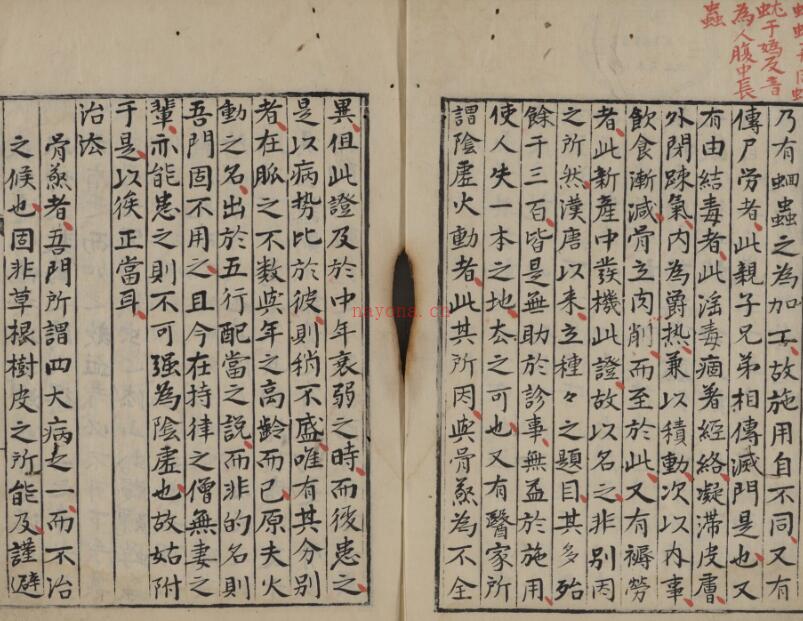 為人腹中長
蟲
乃有蛔蟲之為加工故施用自不同又有
傳尸労者此親子兄弟相傳滅門是也又
有由結毒者此淫毒痼著經絡凝滞皮膚
外閉踈氣内為爵热兼以積動次以内事
飲食漸減骨立肉削而至於此又有褥勞
者此新產中發機此證故以名之非别因
之所然漢唐以来立種々之題目其多殆
餘千三百皆是無助於診事無益於施用
使人失一本之地厺之可也又有醫家所
謂陰虛火動者此其所因與骨蒸為不全
異但此證及於中年衰弱之時而後患之
是以病势比於彼則稍不盛唯有其分别
者在脈之不数與年之高齡而已原夫火
動之名出於五行配當之説而非的名則
吾門固不用之且今在持律之僧無妻之
輩亦能患之則不可强為陰虛也故姑附
于是以俟正當耳
治法
骨蒸者吾門所謂四大病之一而不治
之候也固非草根樹皮之所能及謹避
nayona.cn